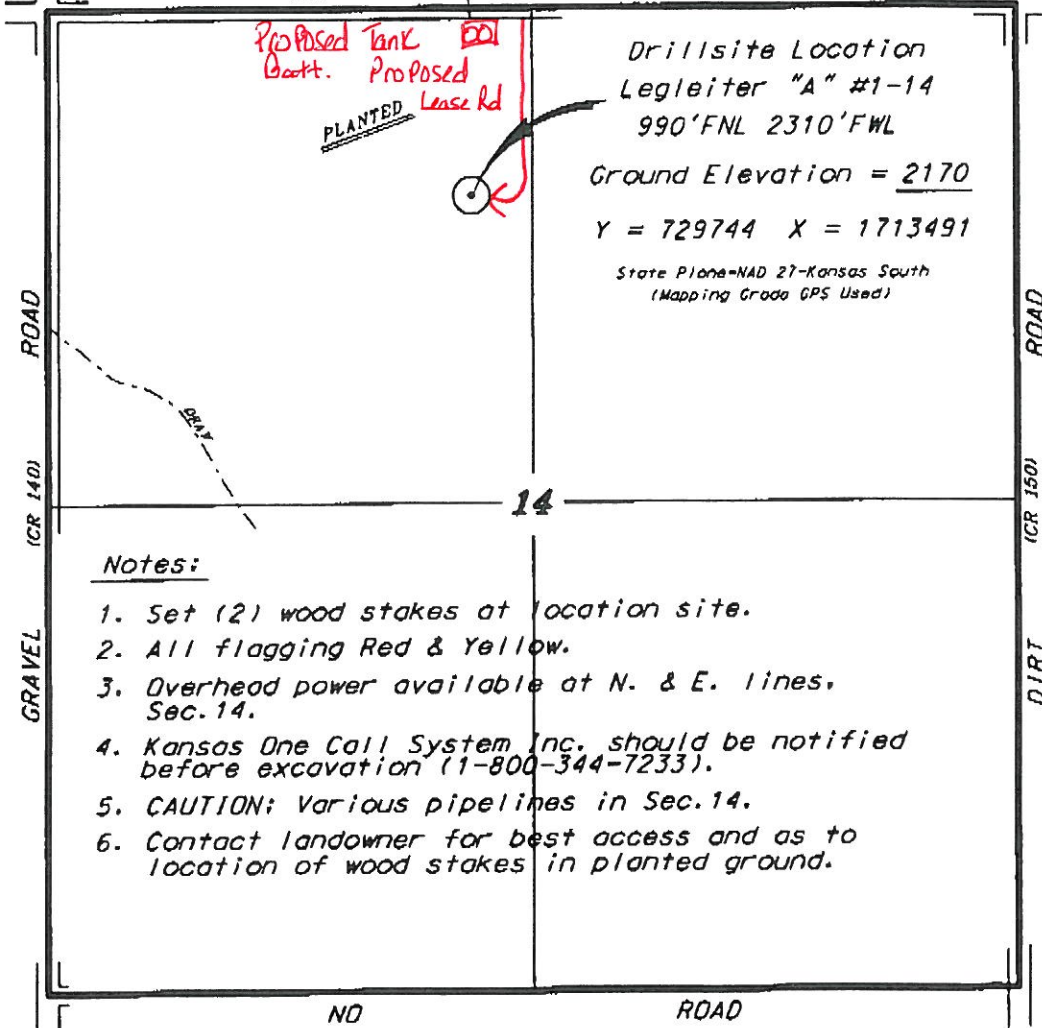 Proposed Tank
Batt. Proposed
Lease Rd
PLANTED
Drillsite Location
Legleiter "A" #1-14
990'FNL 2310'FWL
Ground Elevation = 2170
Y = 729744 X = 1713491
State Plane-NAD 27-Kansas South
(Mapping Grade GPS Used)
GRAVEL (CR 140) ROAD
DRAW
14
DIRT (CR 150) ROAD
Notes:
1. Set (2) wood stakes at location site.
2. All flagging Red & Yellow.
3. Overhead power available at N. & E. lines,
Sec. 14.
4. Kansas One Call System Inc. should be notified
before excavation (1-800-344-7233).
5. CAUTION: Various pipelines in Sec. 14.
6. Contact landowner for best access and as to
location of wood stakes in planted ground.
NO ROAD